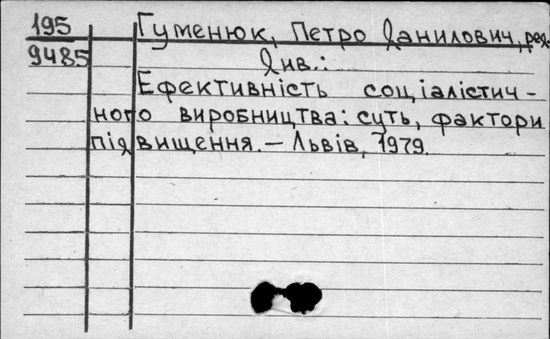 195 Гуменюк, Петро Данилович, ред.
9485 Див.:
Ефективність соціалістич-
ного виробництва: суть, фактори
підвищення. – Львів, 1979.